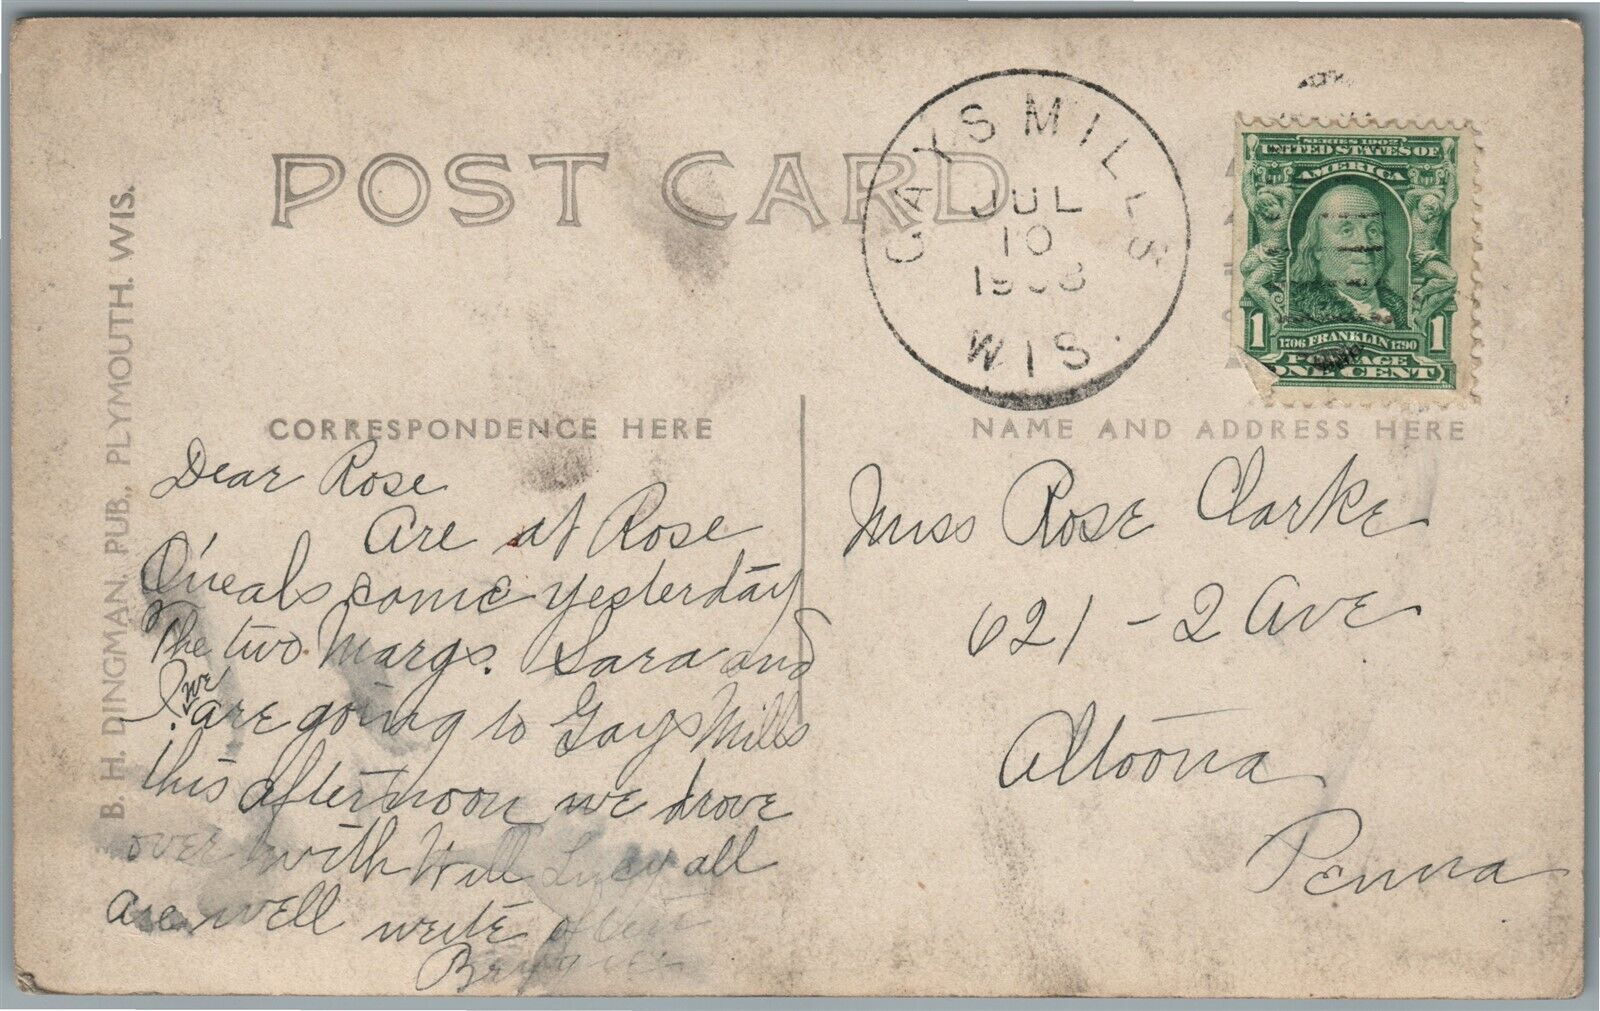 POST CARD
GAYS MILLS
JUL
10
1908
WIS.
SERIES 1902
UNITED STATES OF
AMERICA
1 1706 FRANKLIN 1790 1
POSTAGE
ONE CENT
B. H. DINGMAN, PUB., PLYMOUTH, WIS.
CORRESPONDENCE HERE
Dear Rose
are at Rose
O'neals come yesterday
The two Margs. Sara and
I we are going to Gays Mills
this afternoon we drove
over with Will Lucy all
are well write often
NAME AND ADDRESS HERE
Miss Rose Clarke
621 - 2 Ave
Altoona
Penna